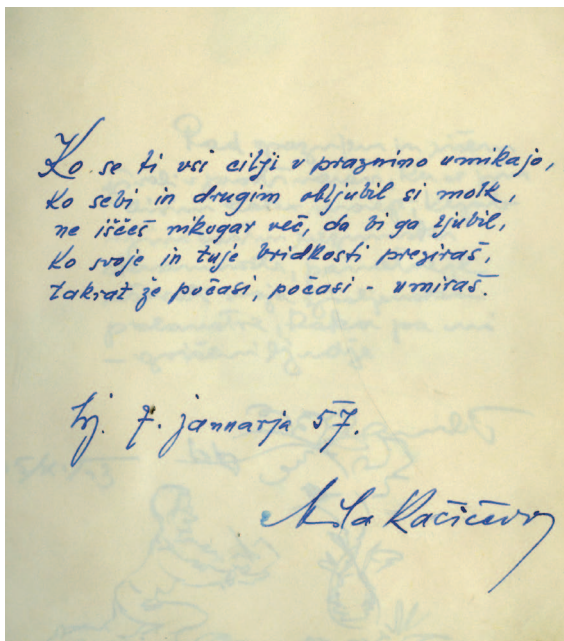 Ko se ti vsi cilji v praznino umikajo,
ko sebi in drugim obljubil si molk,
ne iščeš nikogar več, da bi ga ljubil,
ko svoje in tuje bridkosti preziraš,
takrat že počasi, počasi - umiraš.
Lj. 7. januarja 57.
Mila Kačičeva